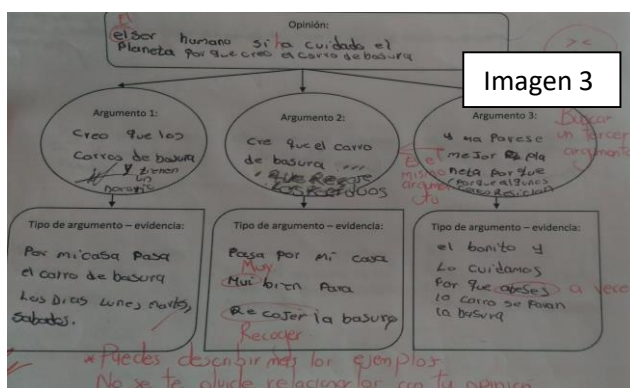 Imagen 3
Opinión:
El
el ser humano si ha cuidado el
Planeta porque creo el carro de basura
Argumento 1:
Creo que los
carros de basura
y tienen
un
horario
Argumento 2:
Cre que el carro
de basura
que Recoje
los Reciduos
Es el
mismo
argumento
Argumento 3:
Buscar
un tercer
argumento
y ma Parese
mejor pla
neta por que
(Porque algunos
Tipo de argumento – evidencia:
Por mi casa Pasa
el carro de basura
Los Dias Lunes, martes,
sabados.
Tipo de argumento – evidencia:
Passa por mi casa
Muy
Mui bien Para
Re cojer la basura
Recoger
Tipo de argumento – evidencia:
el bonito y
Lo cuidamos
Por que abeses
a vece
lo carro se Paran
la basura
* Puedes describir más los ejemplos
No se te olvide relacionarlos con tu opinión